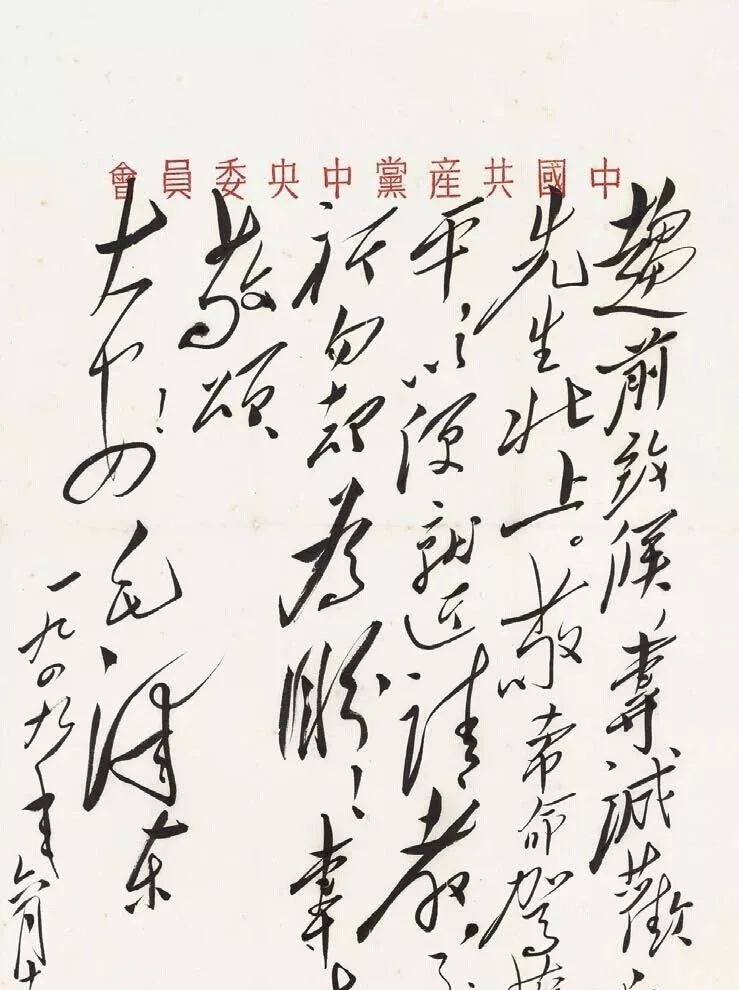 中國共産黨中央委員會
趨前致候，專誠歡
先生北上。敬希命駕
平，以便就近請教，
祈勿却為盼！專
敬頌
大安！
毛澤东
一九四九年六月十